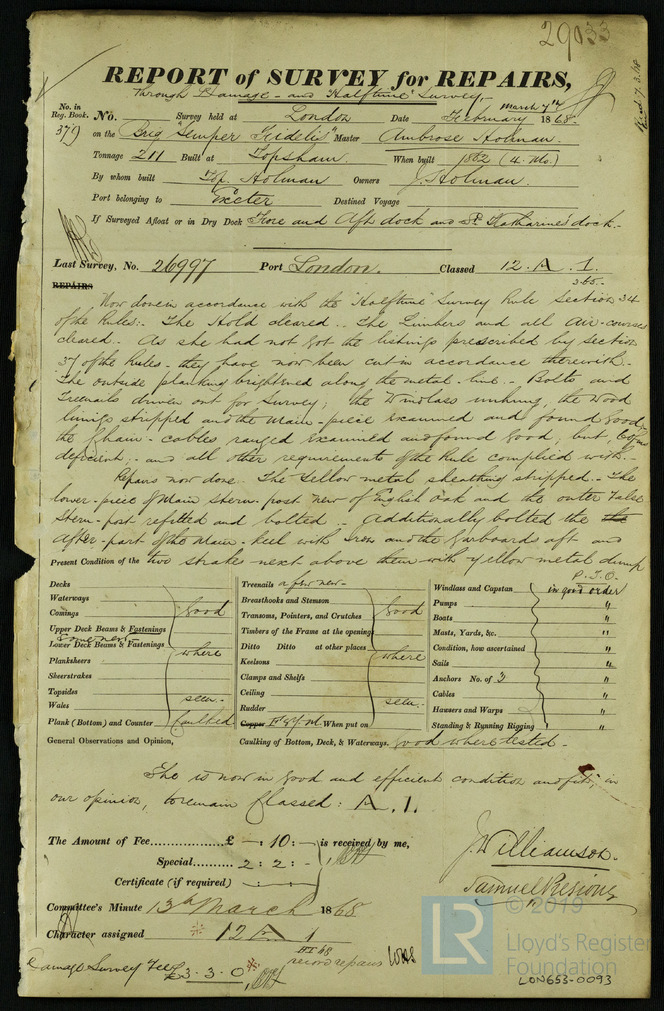 29033
REPORT of SURVEY for REPAIRS,
Through Damage - and Halftime Survey -
No. in Reg. Book. No. Survey held at London Date March 7th February 1868.
379 on the Brig "Semper Fidelis" Master Ambrose Holman.
Tonnage 211 Built at Topsham. When built 1862 (4 Mo.)
By whom built Top. Holman Owners J. Holman.
Port belonging to Exeter Destined Voyage
If Surveyed Afloat or in Dry Dock Fore and Aft dock and St. Katharine's dock.
Last Survey, No. 26997 Port London. Classed 12. A. 1.
REPAIRS
Now done in accordance with the "Halftime" Survey Rule Section 34
of the Rules:- The Hold cleared. The Limbers and all Air-courses
cleared. As she had not got the listings prescribed by Section
37 of the Rules - they have now been cut in accordance therewith.
The outside planking brightened along the metal-line - Bolts and
Treenails driven out for Survey; the Windlass unhung, the wood
linings stripped and the Main-piece examined and found Good,
the Chain-cables ranged examined and found Good, but,
deficient. - and all other requirements of the Rule complied with. -
Repairs now done. The Yellow metal sheathing stripped. - The
lower-piece of Main Stern-post new of English Oak and the outer False
Stern-post refitted and bolted - Additionally bolted the the
After-part of the Main-keel with Iron and the Garboards aft and
Present Condition of the two strakes next above them with yellow metal dump
P.T.O.
Decks
Waterways
Comings
Upper Deck Beams & Fastenings
some new
Lower Deck Beams & Fastenings
Planksheers
Sheerstrakes
Topsides
Wales
Plank (Bottom) and Counter
good
where
seen.
caulked
Treenails a few new -
Breasthooks and Stemson
Transoms, Pointers, and Crutches
Timbers of the Frame at the openings
Ditto Ditto at other places
Keelsons
Clamps and Shelfs
Ceiling
Rudder
Copper When put on
good
where
seen.
Windlass and Capstan in good order
Pumps "
Boats "
Masts, Yards, &c. "
Condition, how ascertained "
Sails "
Anchors No. of 3 "
Cables "
Hawsers and Warps "
Standing & Running Rigging "
General Observations and Opinion, Caulking of Bottom, Deck, & Waterways. Good where tested -
She is now in good and efficient condition and fit, in
our opinion, to remain Classed: A. 1.
The Amount of Fee............£ -: 10: - is received by me,
Special............ 2: 2: -
Certificate (if required) -: -
J. Williamson.
Committee's Minute 13th March 1868
Character assigned 12 A 1
III 68
record repairs
Damage Survey Fee £3-3-0
© 2019
LR Lloyd's Register
Foundation
LON653-0093